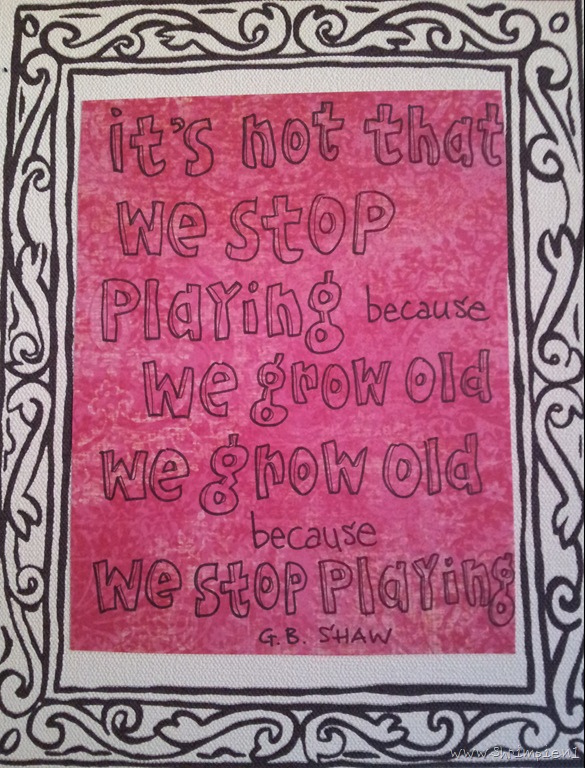 it's not that
we stop
playing because
we grow old
we grow old
because
we stop playing
G.B. SHAW